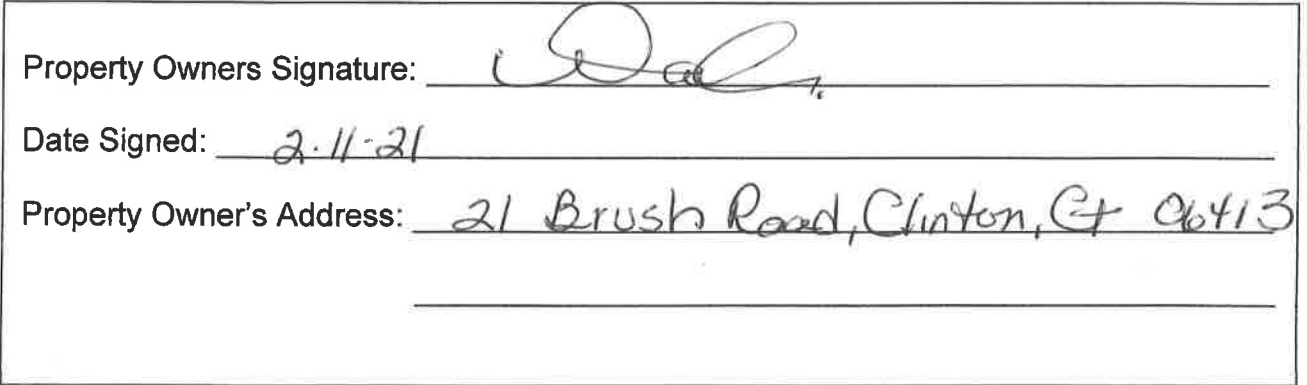 Property Owners Signature:
Date Signed: 2.11.21
Property Owner's Address: 21 Brush Road, Clinton, Ct 06413